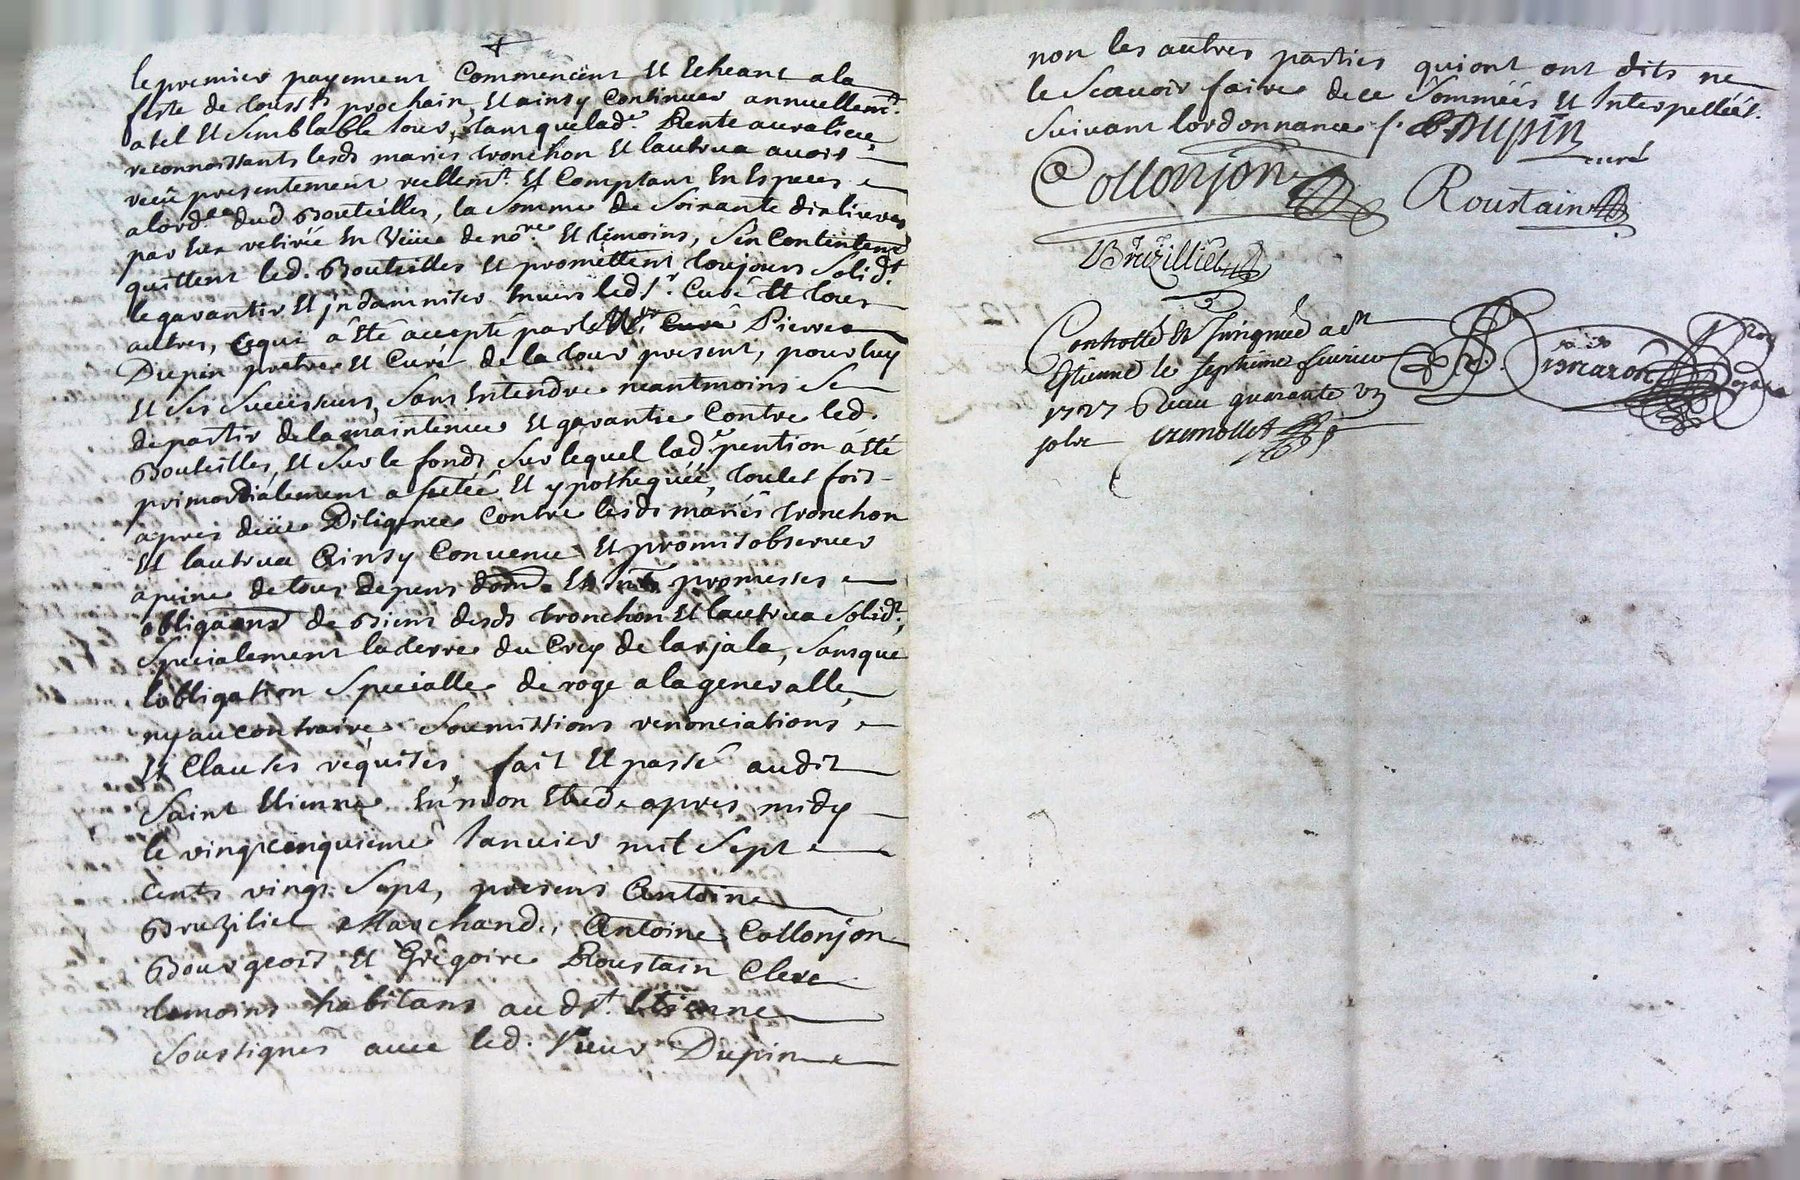 le premier payement Commencent Et Echeant a la
feste de touss.ts prochain, Et ainsy Continuer annuellem.t
a tel Et Semblable Jour, tant que lad.e Rente aura lieu,
reconnoissants lesd. mariés tronchon Et lautrua avoir
receu presentement reellem.t Et Comptant En Especes
dud Bouteilles, la Somme de Soixante dix livres
par Eux retirée En Veüe de no.re Et temoins, Sen Contentent
quittent led. Bouteilles Et promettent toujours Solid.t
le garantir Et jndamniser Envers led. S.r Curé Et tous
autres, Ce qui a Esté accepté par Pierre
Dupin prêtre Et Curé de la tour present, pour luy
Et Ses Successeurs, Sans Entendre neantmoins Se
departir de la maintenue Et garantie Contre led.
Bouteilles, Et Sur le fonds Sur lequel lad.e pention a Esté
primordiàlement afectée Et ypothequée, toutes fois
apres deüe Diligence Contre lesds mariés tronchon
Et lautrua Ainsy Convenu Et promis observer
a peine de tous depens dom. Et promesses
obligaôns de Biens desds tronchon Et lautrua Solid.t,
Specialement la terre du Crey de larjala, Sans que
lobligation Specialle de roge a la generalle,
ny au contraire Soumissions renonciations
Et Clauses requises, fait Et passé audit
Saint Etienne En mon Etude apres midy
le vingtcinquieme Janvier mil Sept
cents vingt Sept, presens Antoine
Bruziliet Marchand, Antoine Collonjon
Bourgeois Et Grégoire Roustain Clerc
temoins habitans aud S.t Etienne
Soussignés avec led. Sieur Dupin
non les autres parties qui ont ont dits ne
le Scavoir faire de ce Sommées Et Interpellées
Suivant lordonnance Dupin
curé
Collonjon Roustain
Bruzilliet
Controllé Et Insignué a S.t
Estienne le Septieme fevrier
1727 Receu quarante un
solz Cremollet